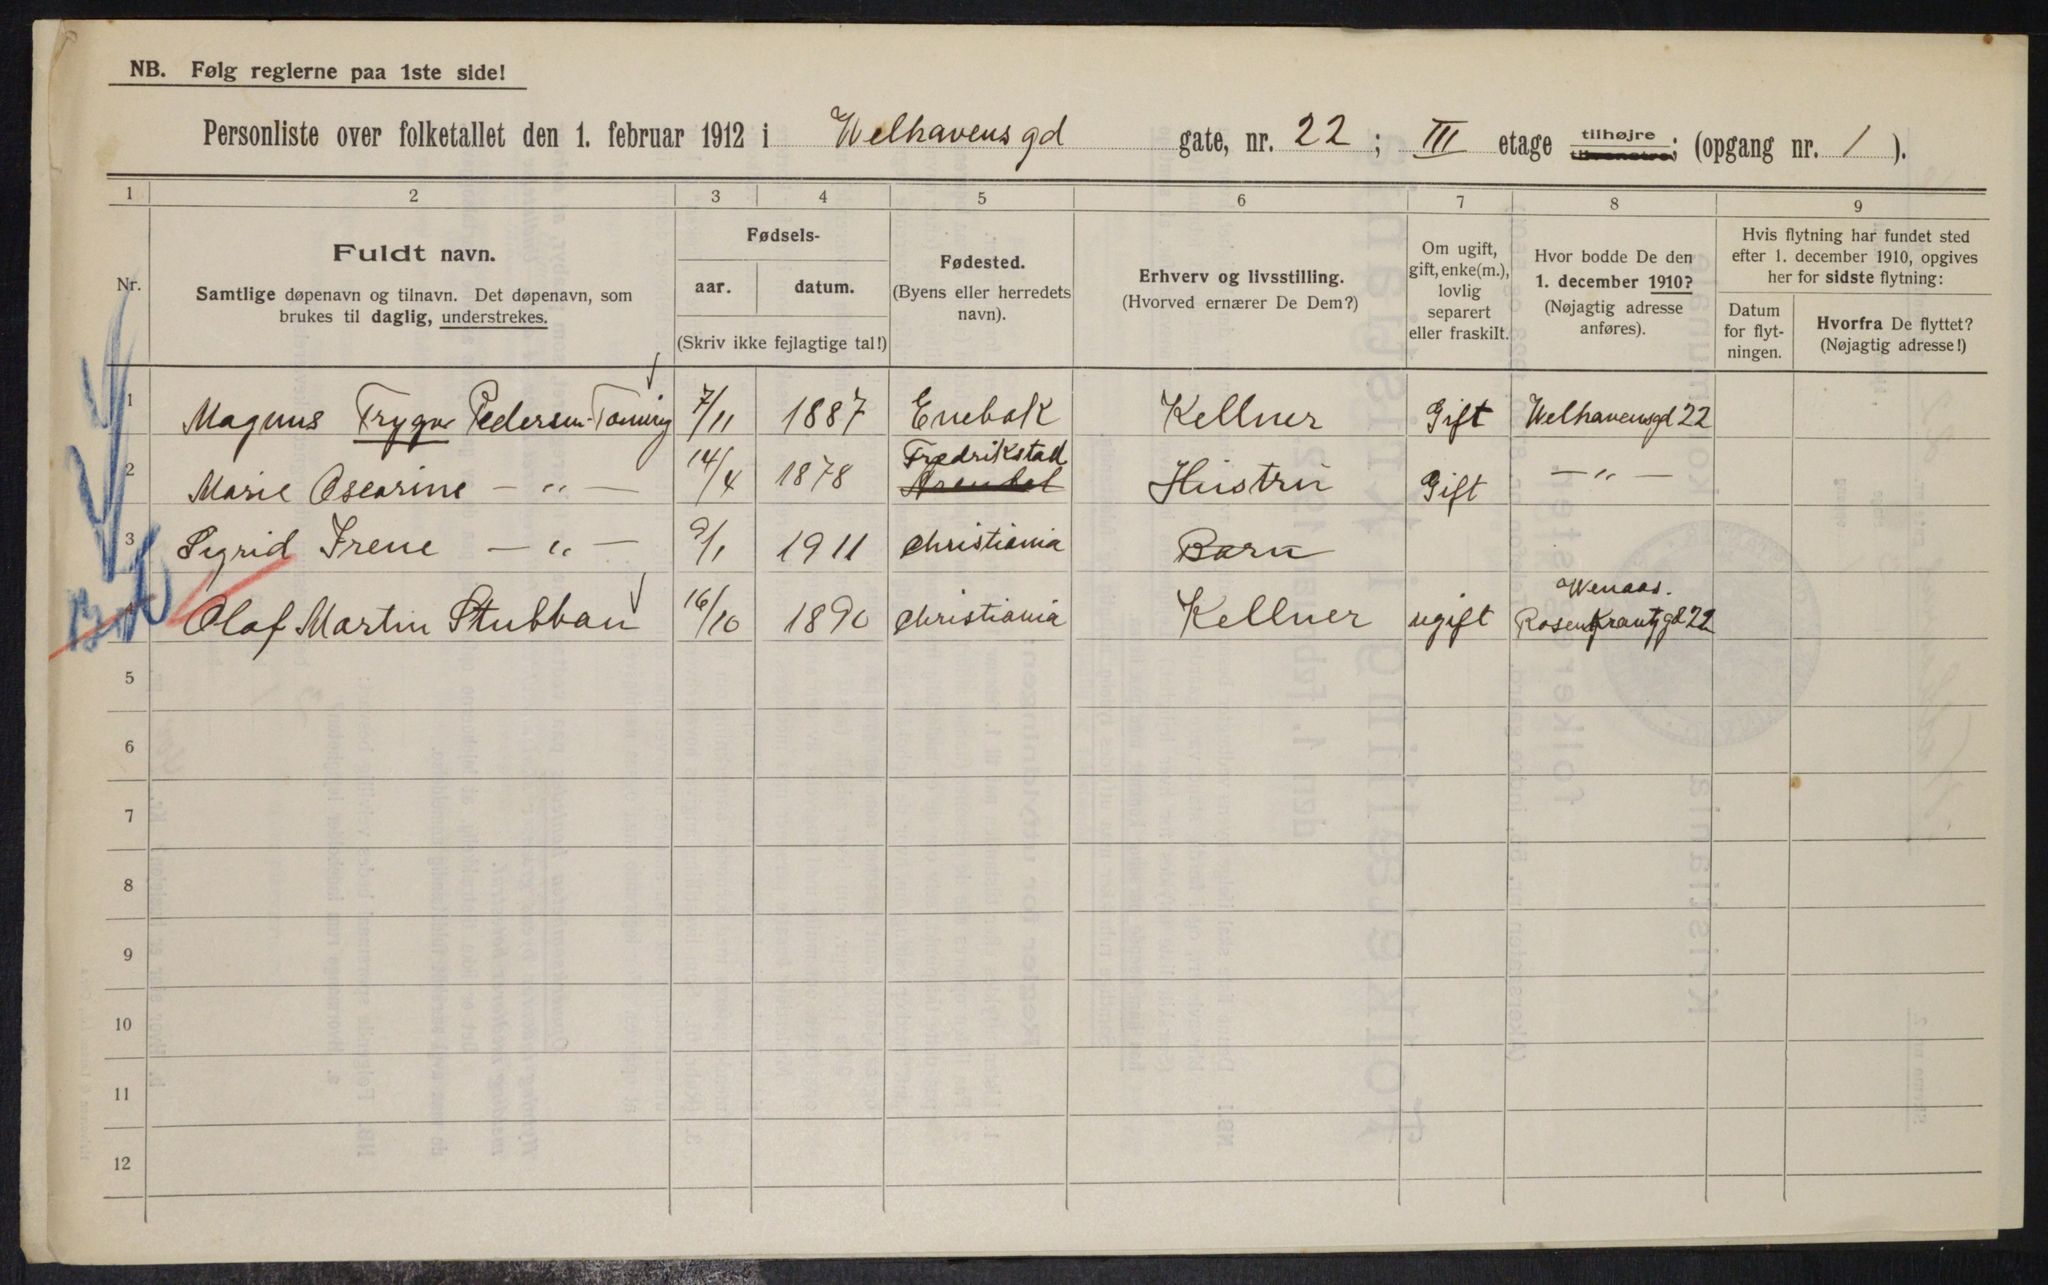 NB. Følg reglerne paa 1ste side!
Personliste over folketallet den 1. februar 1912 i Welhavens gd gate, nr. 22 ; III etage tilhøjre tilvenstre; (opgang nr. 1 ).
1 2 3 4 5 6 7 8 9
Nr.
Fuldt navn.
Samtlige døpenavn og tilnavn. Det døpenavn, som
brukes til daglig, understrekes.
Fødsels-
aar. datum.
(Skriv ikke fejlagtige tal!)
Fødested.
(Byens eller herredets
navn).
Erhverv og livsstilling.
(Hvorved ernærer De Dem?)
Om ugift,
gift, enke(m.),
lovlig
separert
eller fraskilt.
Hvor bodde De den
1. december 1910?
(Nøjagtig adresse
anføres).
Hvis flytning har fundet sted
efter 1. december 1910, opgives
her for sidste flytning:
Datum
for flyt-
ningen.
Hvorfra De flyttet?
(Nøjagtig adresse!)
1 Magnus Trygve Pedersen- 7/11 1887 Enebak Kellner Gift Welhavensgd 22
2 Marie Oscarine — " — 14/4 1878 Fredrikstad Hustru Gift — " —
3 Sigrid Irene — " — 9/1 1911 Christiania Barn
4 Olaf Martin Stubban 16/10 1890 Christiania Kellner ugift Wenaas.
Rosenkrantzgd 22
5
6
7
8
9
10
11
12